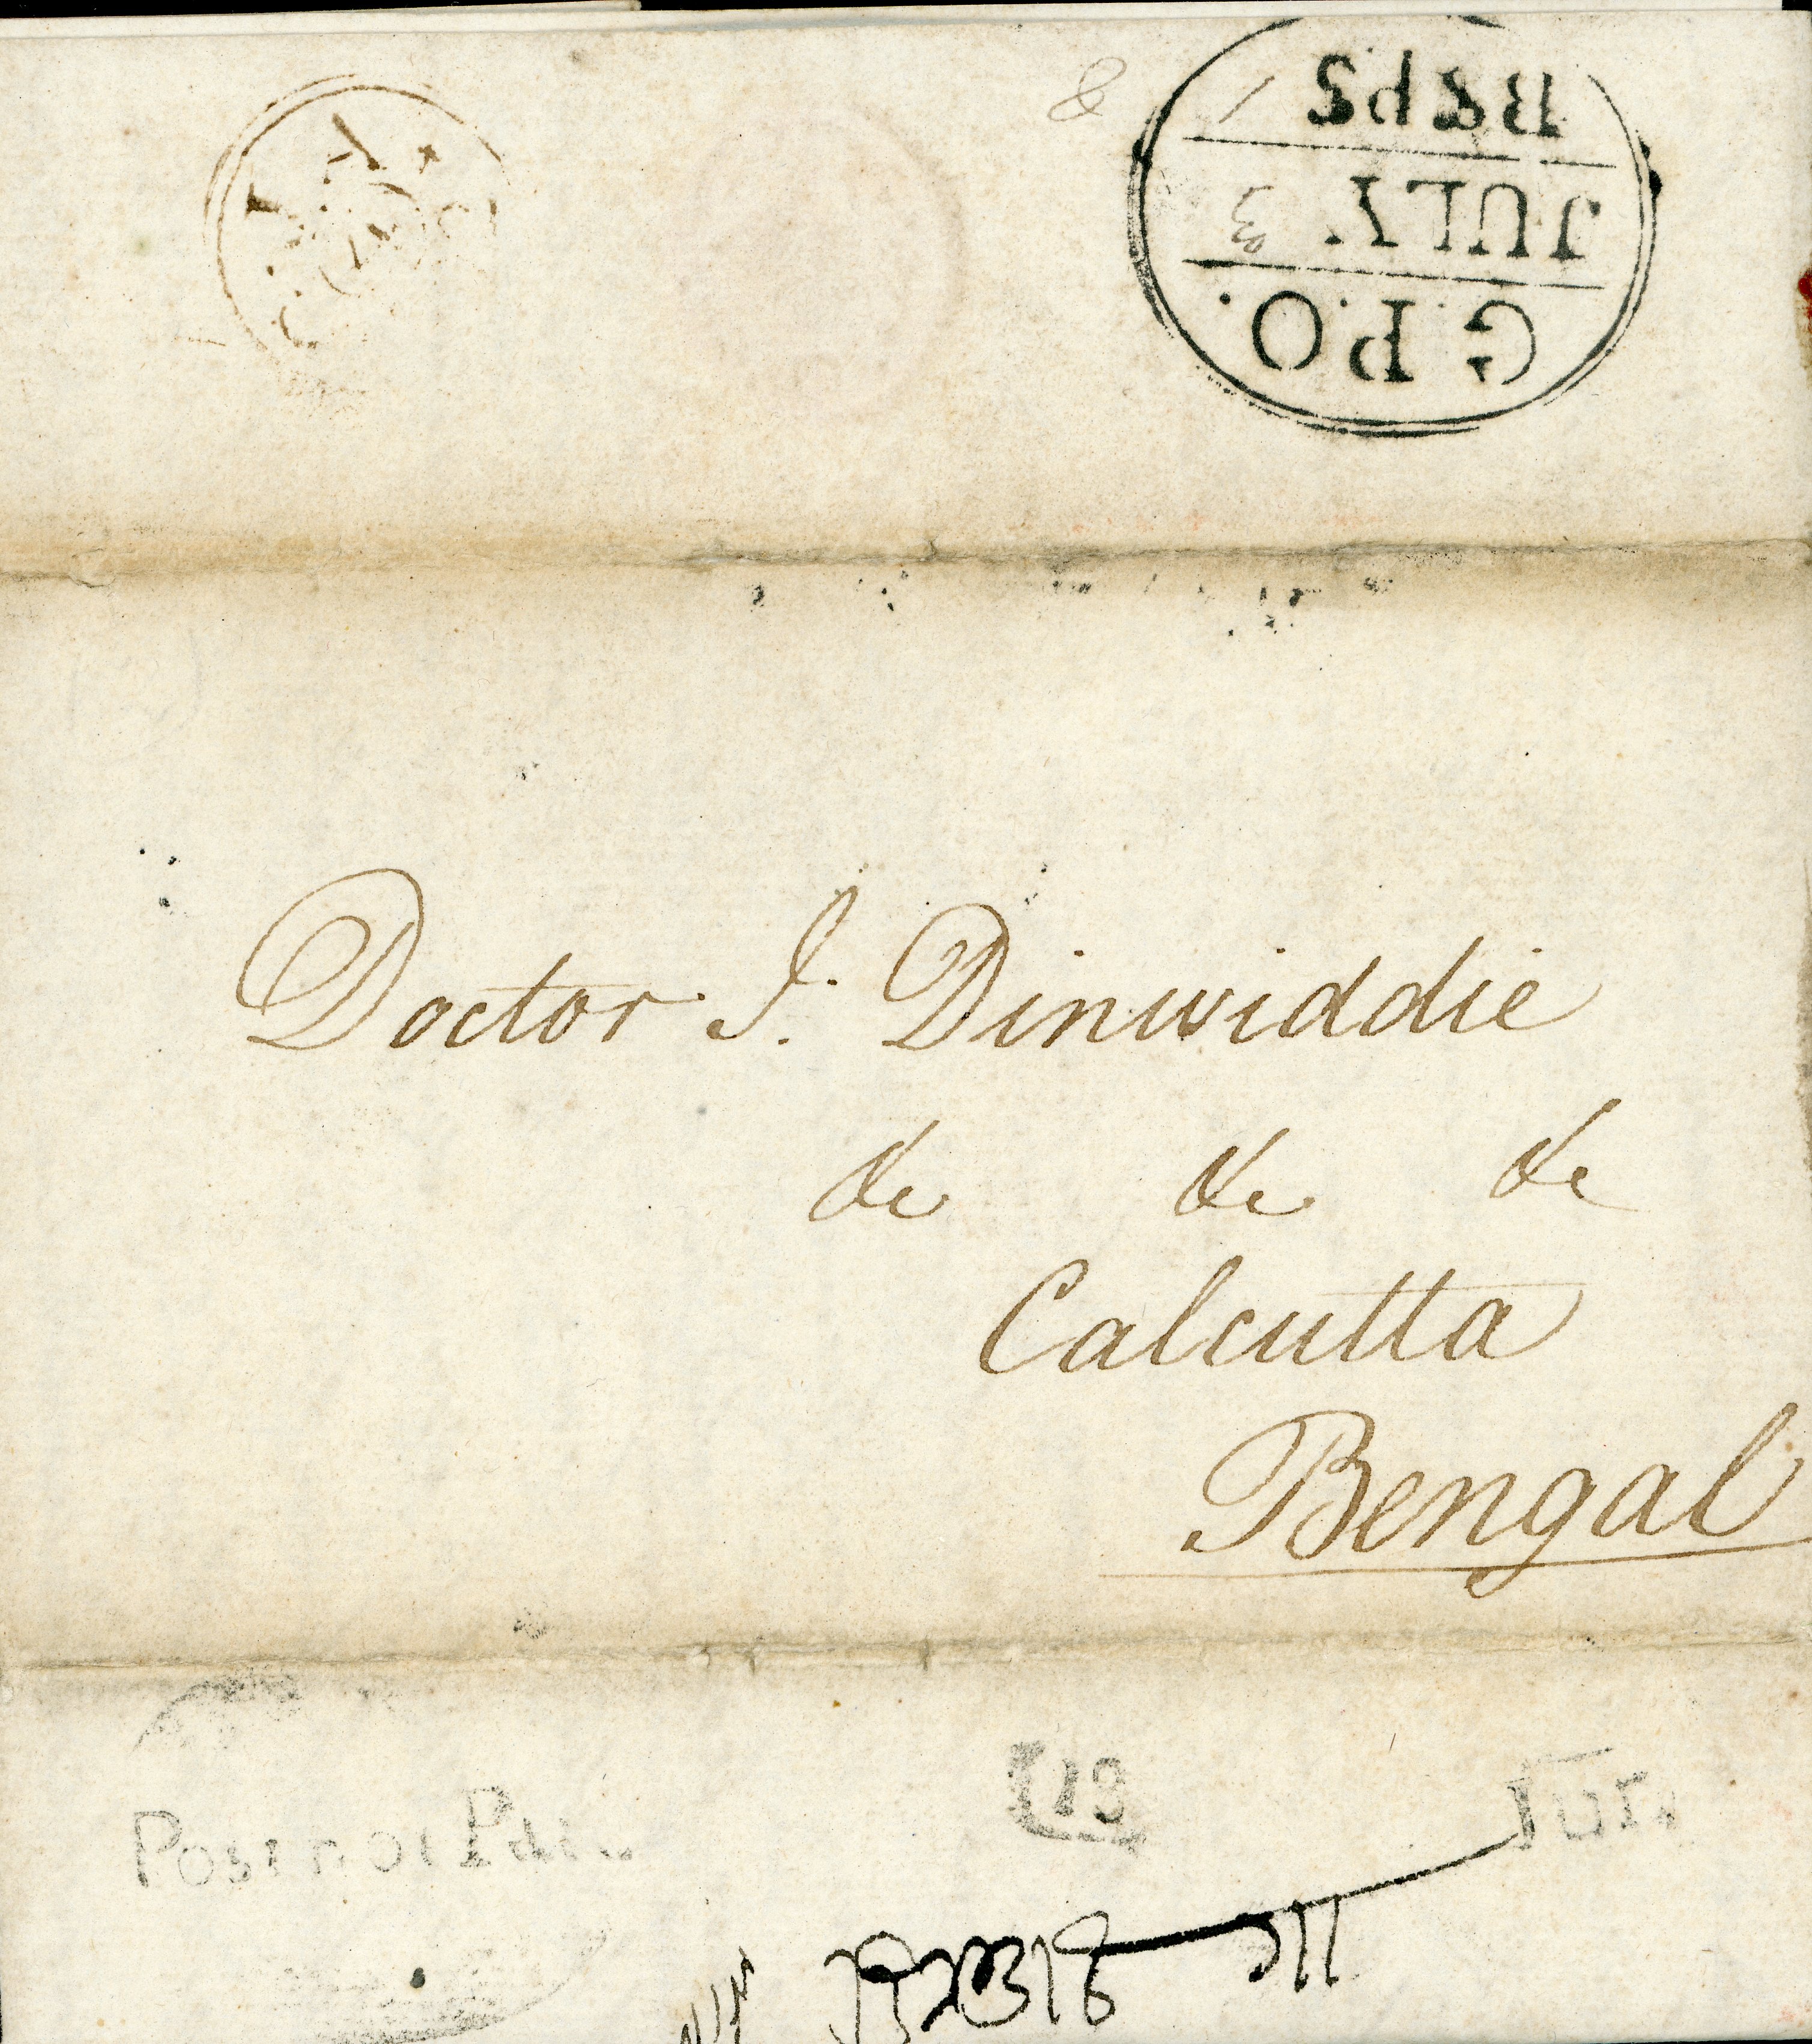 G.P.O.
JULY. 3
Bs Ps 1
Doctor J. Dinwiddie
&c &c &c
Calcutta
Bengal
Post not Paid